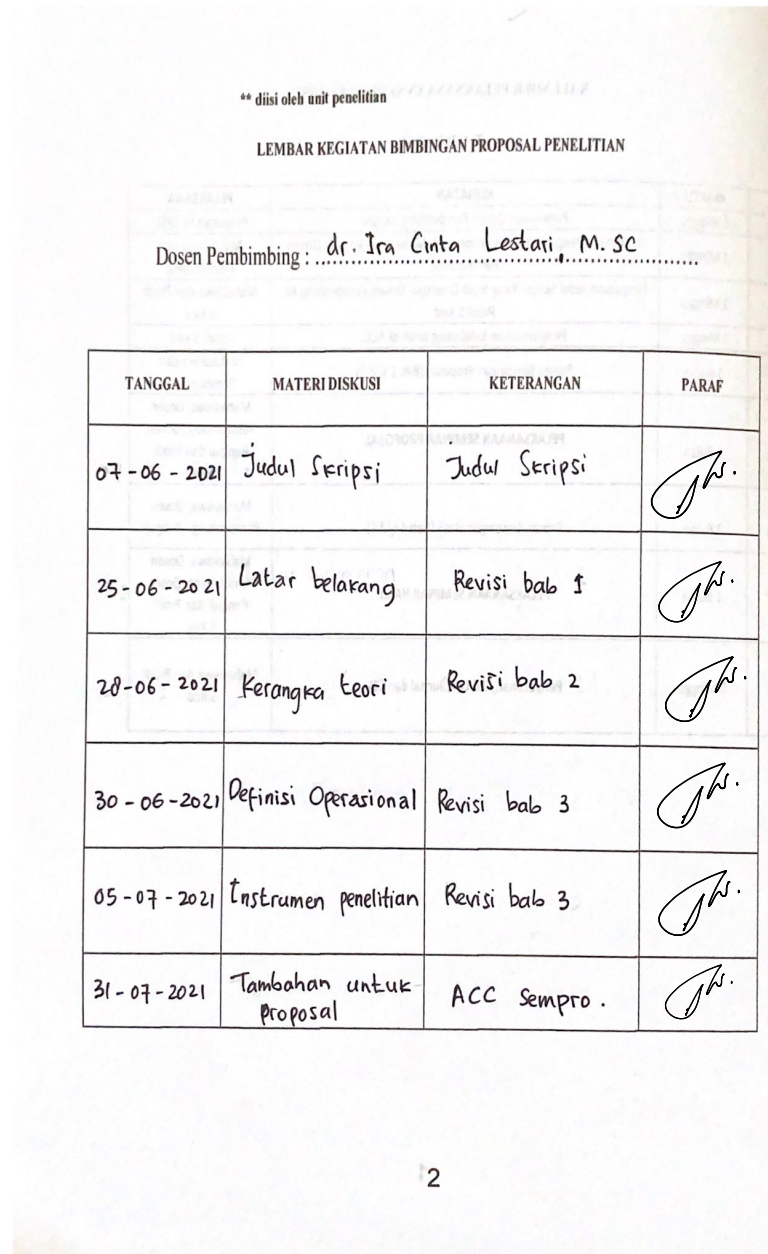 ** diisi oleh unit penelitian
LEMBAR KEGIATAN BIMBINGAN PROPOSAL PENELITIAN
Dosen Pembimbing : dr. Ira Cinta Lestari, M. Sc
TANGGAL MATERI DISKUSI KETERANGAN PARAF
07-06-2021 Judul Skripsi Judul Skripsi
25-06-2021 Latar belakang Revisi bab 1
28-06-2021 Kerangka teori Revisi bab 2
30-06-2021 Definisi Operasional Revisi bab 3
05-07-2021 Instrumen penelitian Revisi bab 3
31-07-2021 Tambahan untuk proposal ACC Sempro.
2